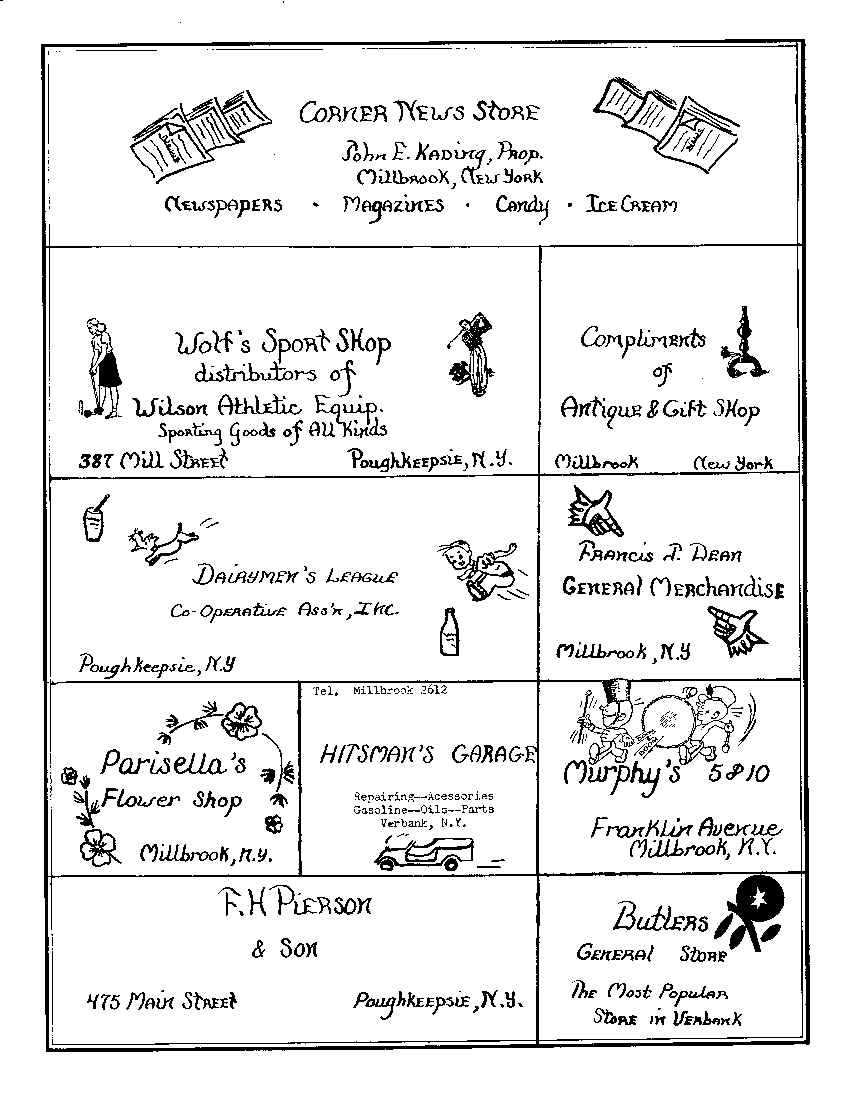 Corner News Store
John E. Kading, Prop.
Millbrook, New York
Newspapers · Magazines · Candy · Ice Cream
Wolf's Sport Shop
distributors of
Wilson Athletic Equip.
Sporting Goods of All Kinds
387 Mill Street Poughkeepsie, N.Y.
Compliments
of
Antique & Gift Shop
Millbrook New York
Dairymen's League
Co-Operative Ass'n, Inc.
Poughkeepsie, N.Y
Francis J. Dean
General Merchandise
Millbrook, N.Y
Parisella's
Flower Shop
Millbrook, N.Y.
Tel. Millbrook 2612
HITSMAN'S GARAGE
Repairing--Acessories
Gasoline--Oils--Parts
Verbank, N.Y.
Murphy's 5&10
Franklin Avenue
Millbrook, N.Y.
F.H Pierson
& Son
475 Main Street Poughkeepsie, N.Y.
Butlers
General Store
The Most Popular
Store in Verbank